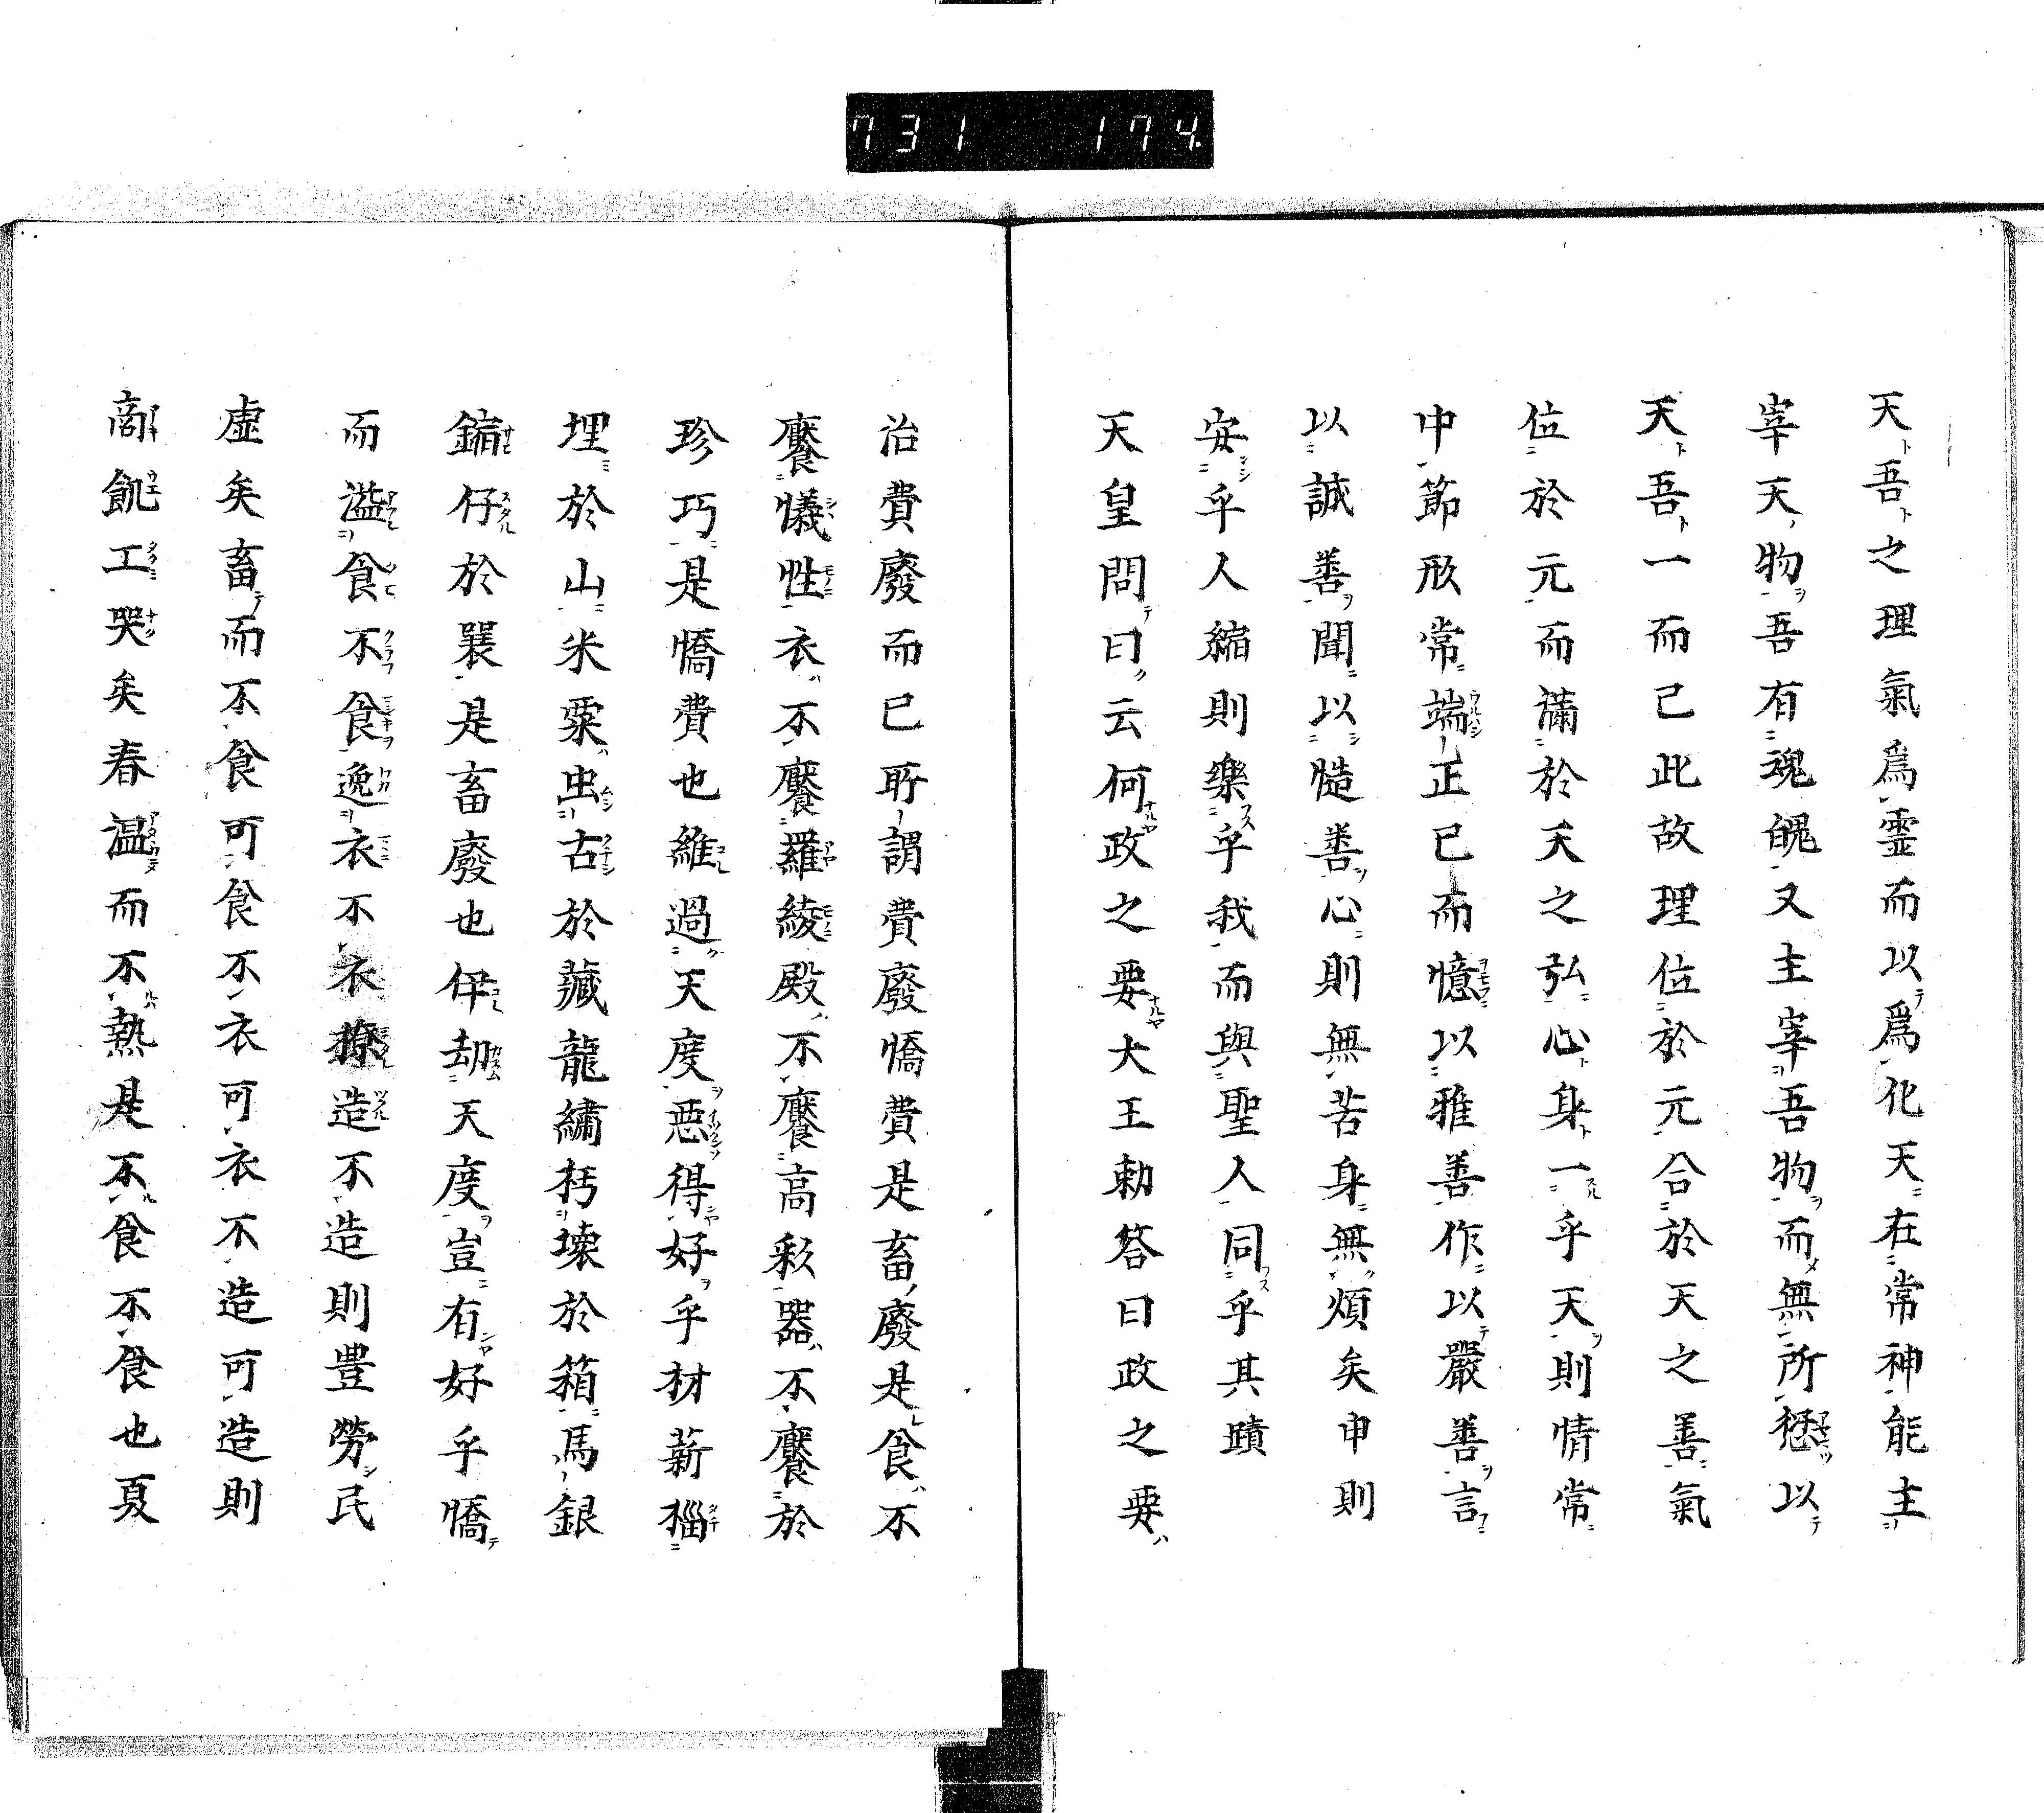 731 174
天吾之理氣爲霊而以爲化天在常神能主
宰天物吾有魂魄又主宰吾物而無所愆以
天吾一而己此故理位於元合於天之善氣
位於元而滿於天之弘心身一乎天則情常
中節形常端正已而憶以雅善作以嚴善言
以誠善聞以慥善心則無苦身無煩矣申則
安乎人縮則樂乎我而與聖人同乎其蹟
天皇問曰云何政之要大王勅答曰政之要
治費廢而已所謂費廢憍費是畜廢是食不
饜犠性衣不饜羅綾殿不饜高彩器不饜於
珍巧是憍費也維過天度惡得好乎材薪椔
埋於山米粟虫古於藏龍繡朽壞於箱馬銀
鏥仔於襄是畜廢也伊刧天度豈有好乎憍
而溢食不食逸衣不衣撩造不造則豊勞民
虛矣畜而不食可食不衣可衣不造可造則
啇飢工哭矣春温而不熱是不食不食也夏